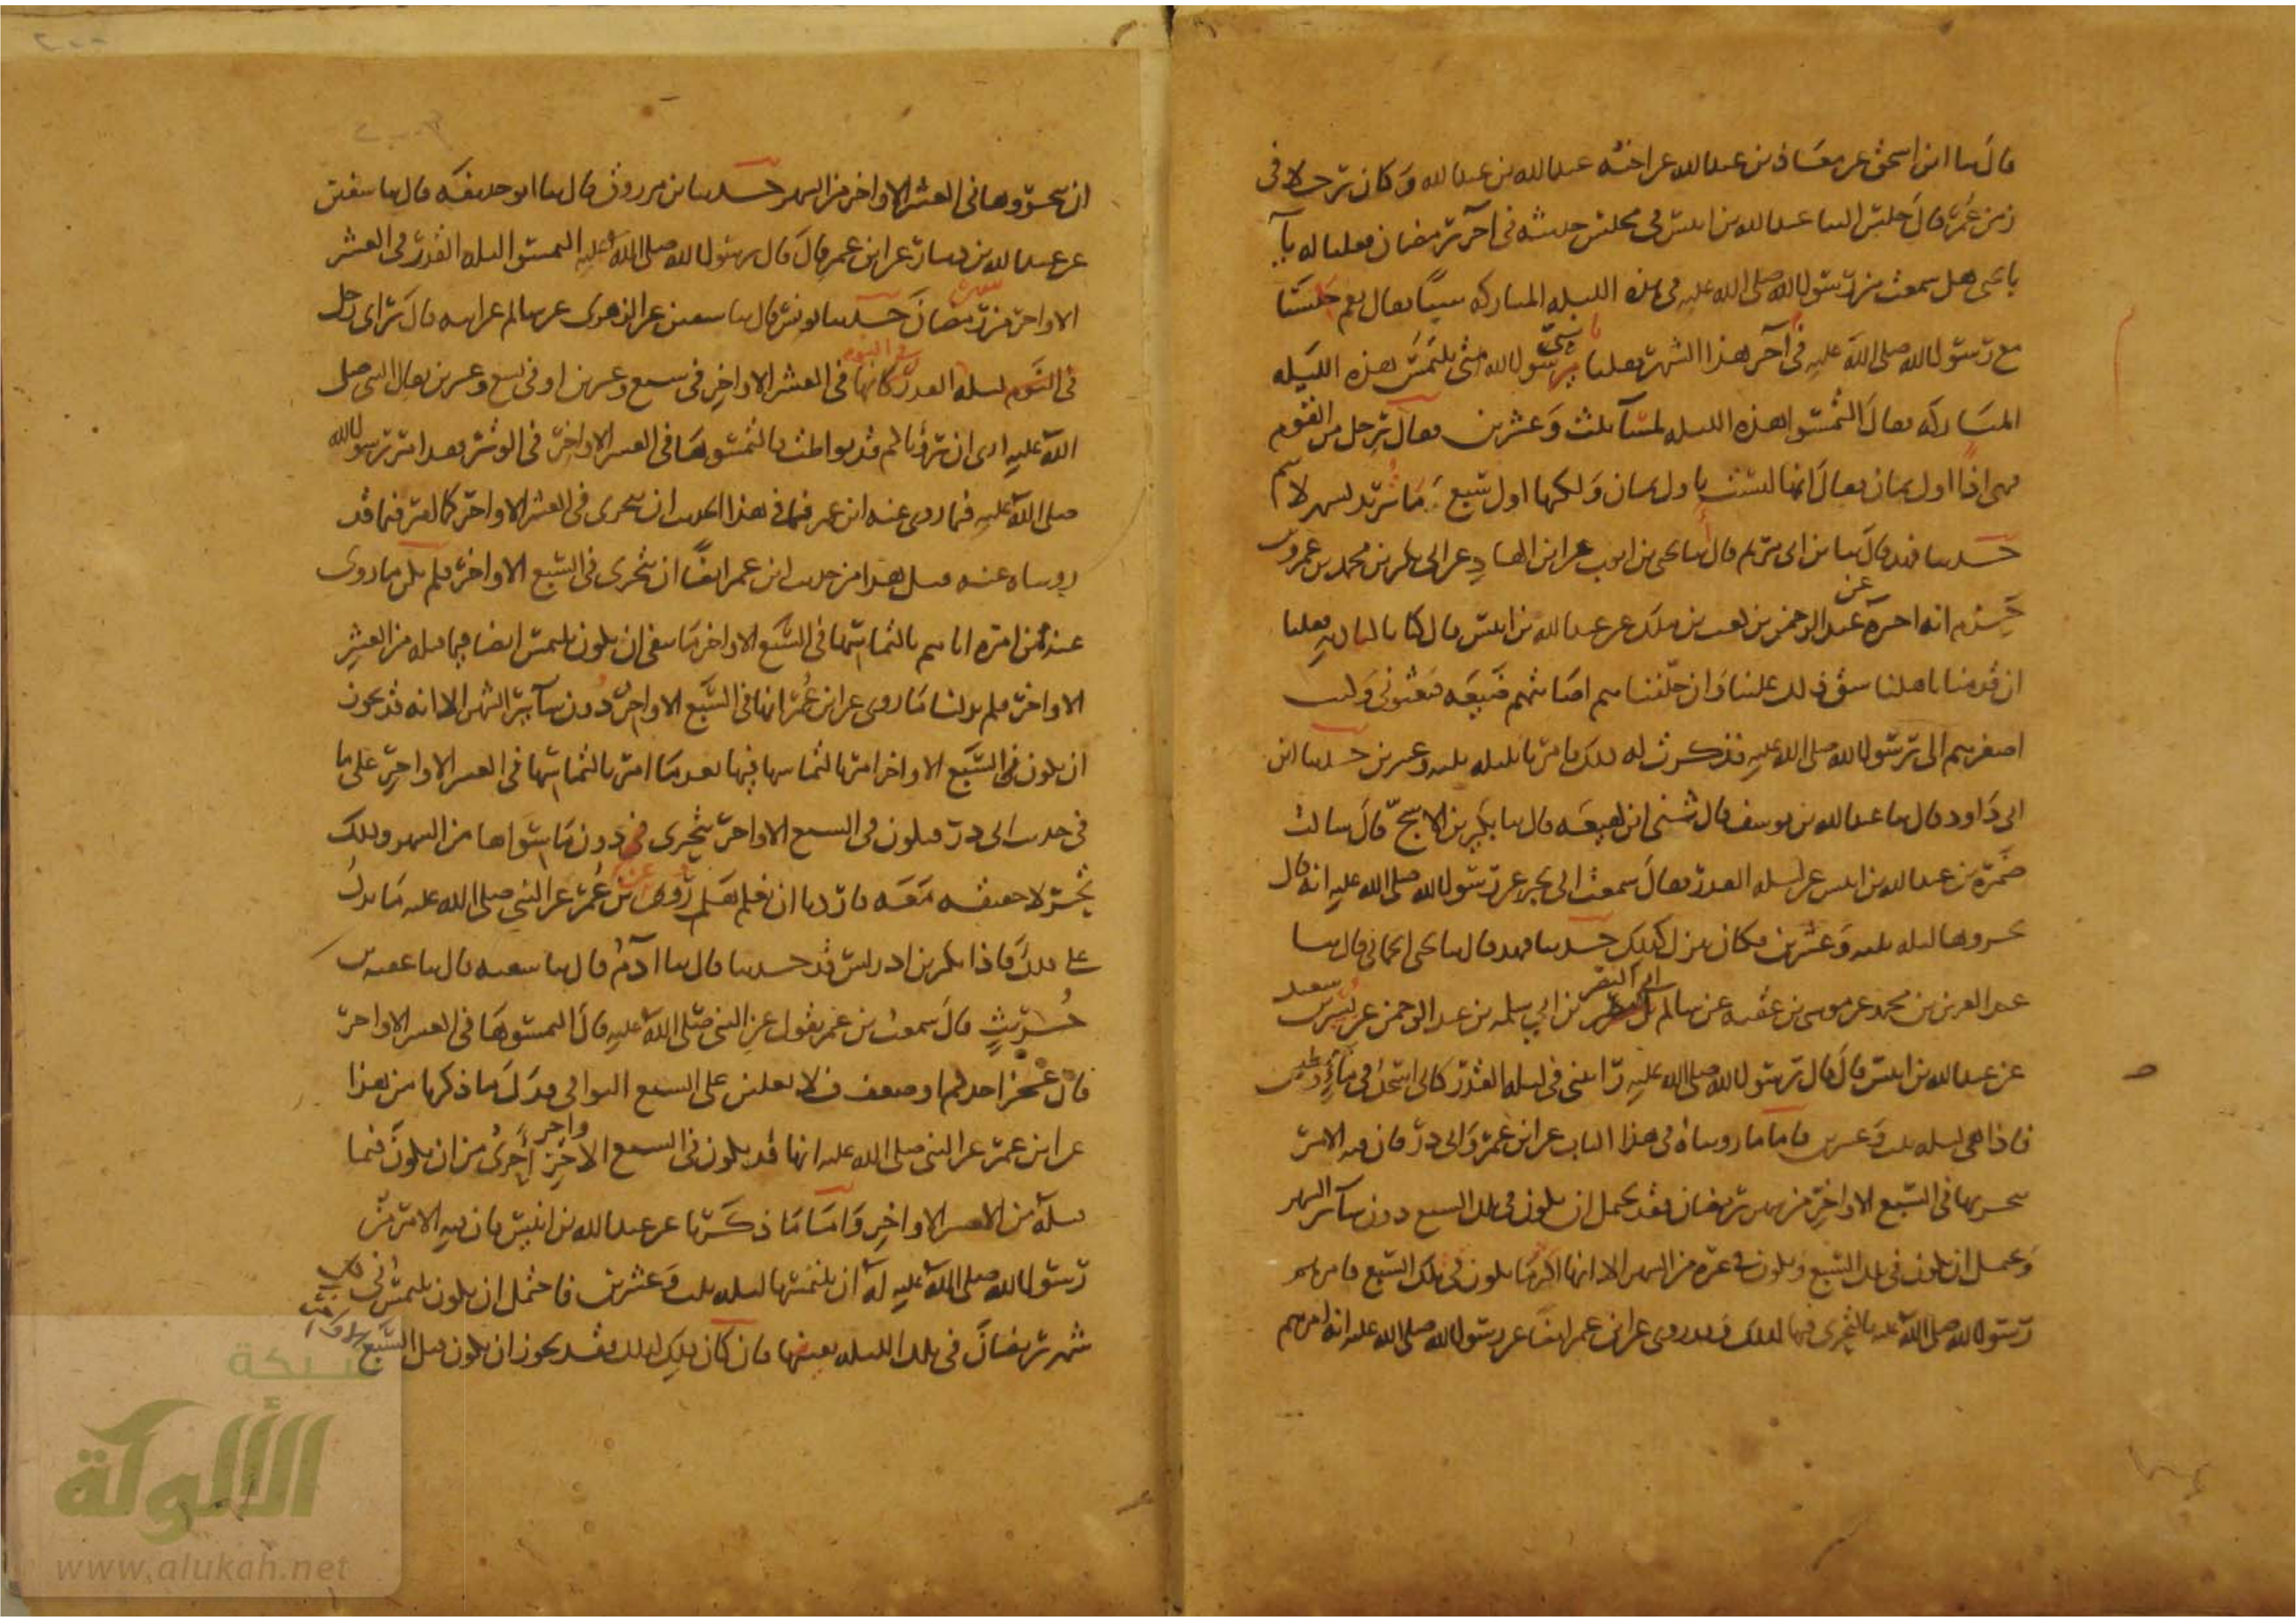 قال ثنا ابن اسحق عن معاذ بن عبد الله عن اخيه عبد الله بن عبد الله وكان رجلا في
زمن عمر قال جلس الينا عبد الله بن انيس في مجلس جهينة في آخر رمضان فقلنا له يا با
يحيى هل سمعت من رسول الله صلى الله عليه في هذه الليلة المباركة شيئا فقال نعم جلسنا
مع رسول الله صلى الله عليه في آخر هذا الشهر فقلنا يا نبي الله متى نلتمس هذه الليلة
المباركة فقال التمسوا هذه الليلة لمسآ ثلث وعشرين فقال رجل من القوم
فهى اذا اولى ثمان فقال انها ليست باولى ثمان ولكنها اول سبع ما تريد بشهر لا يتم
حدثنا فهد قال ثنا بن ابي مريم قال انا يحيى بن ايوب عن ابن الهاد عن ابي بكر بن محمد بن عمرو بن
حزم انه اخبره عن عبد الرحمن بن كعب بن ملك عن عبد الله بن انيس قال كنا بالبادية فقلنا
ان قدمنا باهلنا شق ذلك علينا وان خلفناهم اصابتهم ضيعة فبعثوني وكنت
اصغرهم الى رسول الله صلى الله عليه فذكرت له ذلك فامرنا بليلة ثلث وعشرين حدثنا ابن
ابي داود قال ثنا عبد الله بن يوسف قال ثنى ابن لهيعة قال ثنا بكير بن الاشج قال سالت
ضمرة بن عبد الله بن انيس عن ليلة القدر فقال سمعت ابي يخبر عن رسول الله صلى الله عليه انه قال
تحروها ليلة ثلث وعشرين فكان ينزل كذلك حدثنا فهد قال ثنا يحيى الحماني قال ثنا
عبد العزيز بن محمد عن موسى بن عقبة عن سالم ابي النضر عن ابي سلمة بن عبد الرحمن عن بسر بن سعيد
عن عبد الله بن انيس قال قال رسول الله صلى الله عليه رايتني في ليلة القدر كاني اسجد في ماء وطين
فاذا هي ليلة ثلث وعشرين فاما ما رويناه في هذا الباب عن ابن عمر وابي ذر فان فيه الامر
بتحريها في السبع الاواخر من شهر رمضان فقد يحتمل ان يكون في تلك السبع دون سائر الشهر
ويحتمل ان يكون في تلك السبع ويكون في غيره من الشهر الا انها اكثر ما يكون في تلك السبع فامرهم
رسول الله صلى الله عليه بالتحري فيها لذلك وقد روى عن ابن عمر ايضا عن رسول الله صلى الله عليه انه امرهم
ان يتحروها في العشر الاواخر من الشهر حدثنا بن مرزوق قال ثنا ابو حذيفة قال ثنا سفين
عن عبد الله بن دينار عن ابن عمر قال قال رسول الله صلى الله عليه التمسوا ليلة القدر في العشر
الاواخر من رمضان حدثنا يونس قال ثنا سفين عن الزهرى عن سالم عن ابيه قال راى رجل
في النوم ليلة القدر كانها في العشر الاواخر في سبع وعشرين او في تسع وعشرين فقال النبي صلى
الله عليه ارى ان رؤياكم قد تواطت فالتمسوها في العشر الاواخر في الوتر فقد امر رسول الله
صلى الله عليه فيما روى عنه ابن عمر فيما في هذا الحديث ان تتحرى في العشر الاواخر كما امر فيما قد
رويناه عنه قبل هذا من حديث ابن عمر ايضا ان تتحرى في السبع الاواخر فلم يكن ما روى
عنه من امره اياهم بالتماسها في السبع الاواخر ما ينفي ان يكون يلتمس ايضا فيما قبله من العشر
الاواخر فلم يدلنا ما روى عن ابن عمر انها في السبع الاواخر دون سائر الشهر الا انه قد يجوز
ان يكون في السبع الاواخر امر بالتماسها فيها بعد ما امر بالتماسها في العشر الاواخر على ما
في حديث ابي ذر فيكون في السبع الاواخر يتحرى دون ما سواها من الشهر وذلك
تحر لا حقيقة معه فاردنا ان نعلم هل روى عن بن عمر عن النبي صلى الله عليه ما يدل
على ذلك فاذا بكر بن ادريس قد حدثنا قال ثنا آدم قال ثنا شعبة قال ثنا عقبة بن
حريث قال سمعت بن عمر يقول عن النبي صلى الله عليه قال التمسوها في العشر الاواخر
فان عجز احدكم او ضعف فلا يغلبن على السبع البواقي فدل ما ذكرنا من هذا
عن ابن عمر عن النبي صلى الله عليه انها قد يكون في السبع الاواخر احرى من ان يكون فيما
قبله من العشر الاواخر واما ما ذكرنا عن عبد الله بن انيس فان فيه الامر من
رسول الله صلى الله عليه له ان يلتمسها ليلة ثلث وعشرين فاحتمل ان يكون يلتمس في كل
شهر رمضان في تلك الليلة بعينها فان كان ذلك كذلك فقد يجوز ان يكون قبل السبع الاواخر
شبكة
الألوكة
www.alukah.net